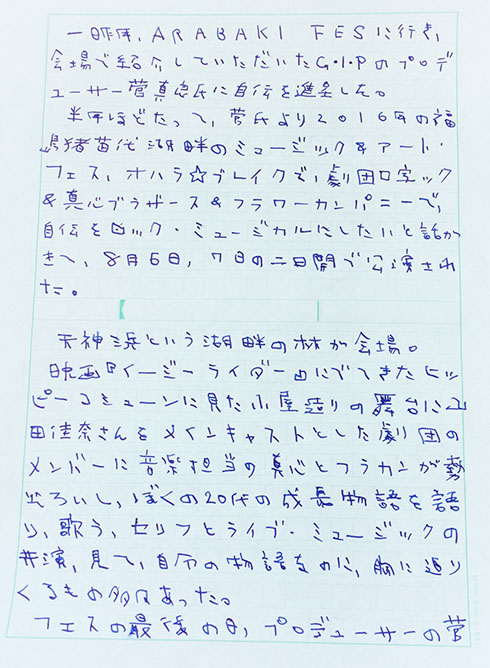 一昨年、ARABAKI FESに行き、
会場で紹介していただいたG・I・Pのプロデ
ューサー菅真良氏に自伝を進呈した。
半年ほどたって、菅氏より2016年の福
島猪苗代湖畔のミュージック&アート・
フェス、オハラ☆ブレイクで、劇団口字ック
&真心ブラザーズ&フラワーカンパニーで、
自伝をロック・ミュージカルにしたいと話が
きて、8月6日、7日の二日間で公演され
た。
天神浜という湖畔の林が会場。
映画『イージーライダー』にでてきたヒッ
ピーコミューンに見た小屋造りの舞台に山
田佳奈さんをメインキャストとした劇団の
メンバーに音楽担当の真心とフラカンが勢
ぞろいし、ぼくの20代の成長物語を語
り、歌う、セリフとライブ・ミュージックの
共演、見て、自分の物語なのに、胸に迫り
くるもの多々あった。
フェスの最後の日、プロデューサーの菅